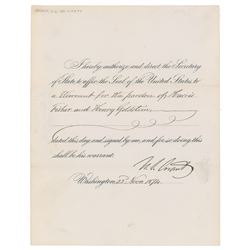 I hereby authorize and direct the Secretary
of State to affix the Seal of the United States to
a Warrant for the pardon of
Fisher and Henry Goldstein,
dated this day, and signed by me, and for so doing this
shall be his warrant.
U. S. Grant
Washington, 23 Novr. 1874.